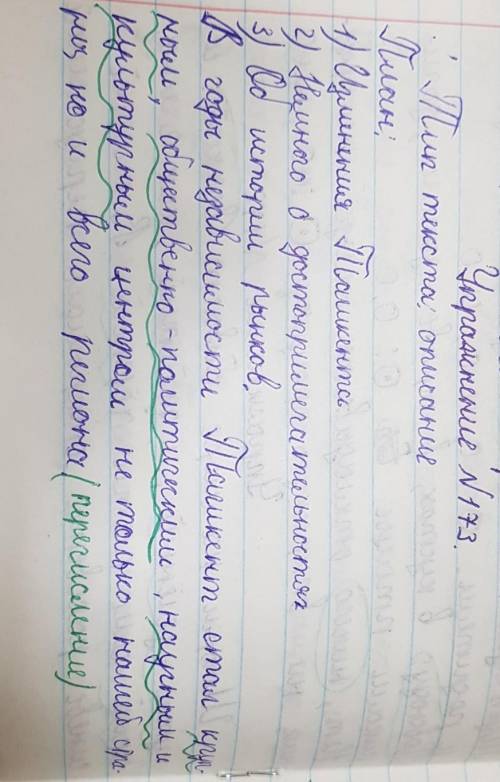 Упражнение №173.
Тип текста; описание
План:
1) Изменения Ташкента
2) Немного о достопримечательностях
3) Об истории рынков.
В годы независимости Ташкент стал круп-
ным, общественно-политическим, научным и
культурным центром не только нашей стра-
ны, но и всего региона (перечисление)